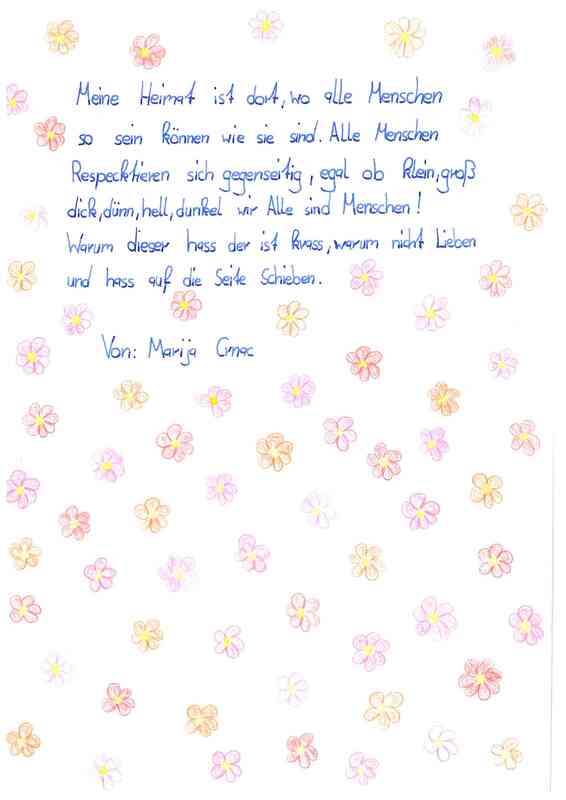 Meine Heimat ist dort, wo alle Menschen
so sein können wie sie sind. Alle Menschen
Respecktieren sich gegenseitig, egal ob klein, groß
dick, dünn, hell, dunkel wir Alle sind Menschen!
Warum dieser hass der ist krass, warum nicht Lieben
und hass auf die Seite Schieben.
Von: Marija Crnac